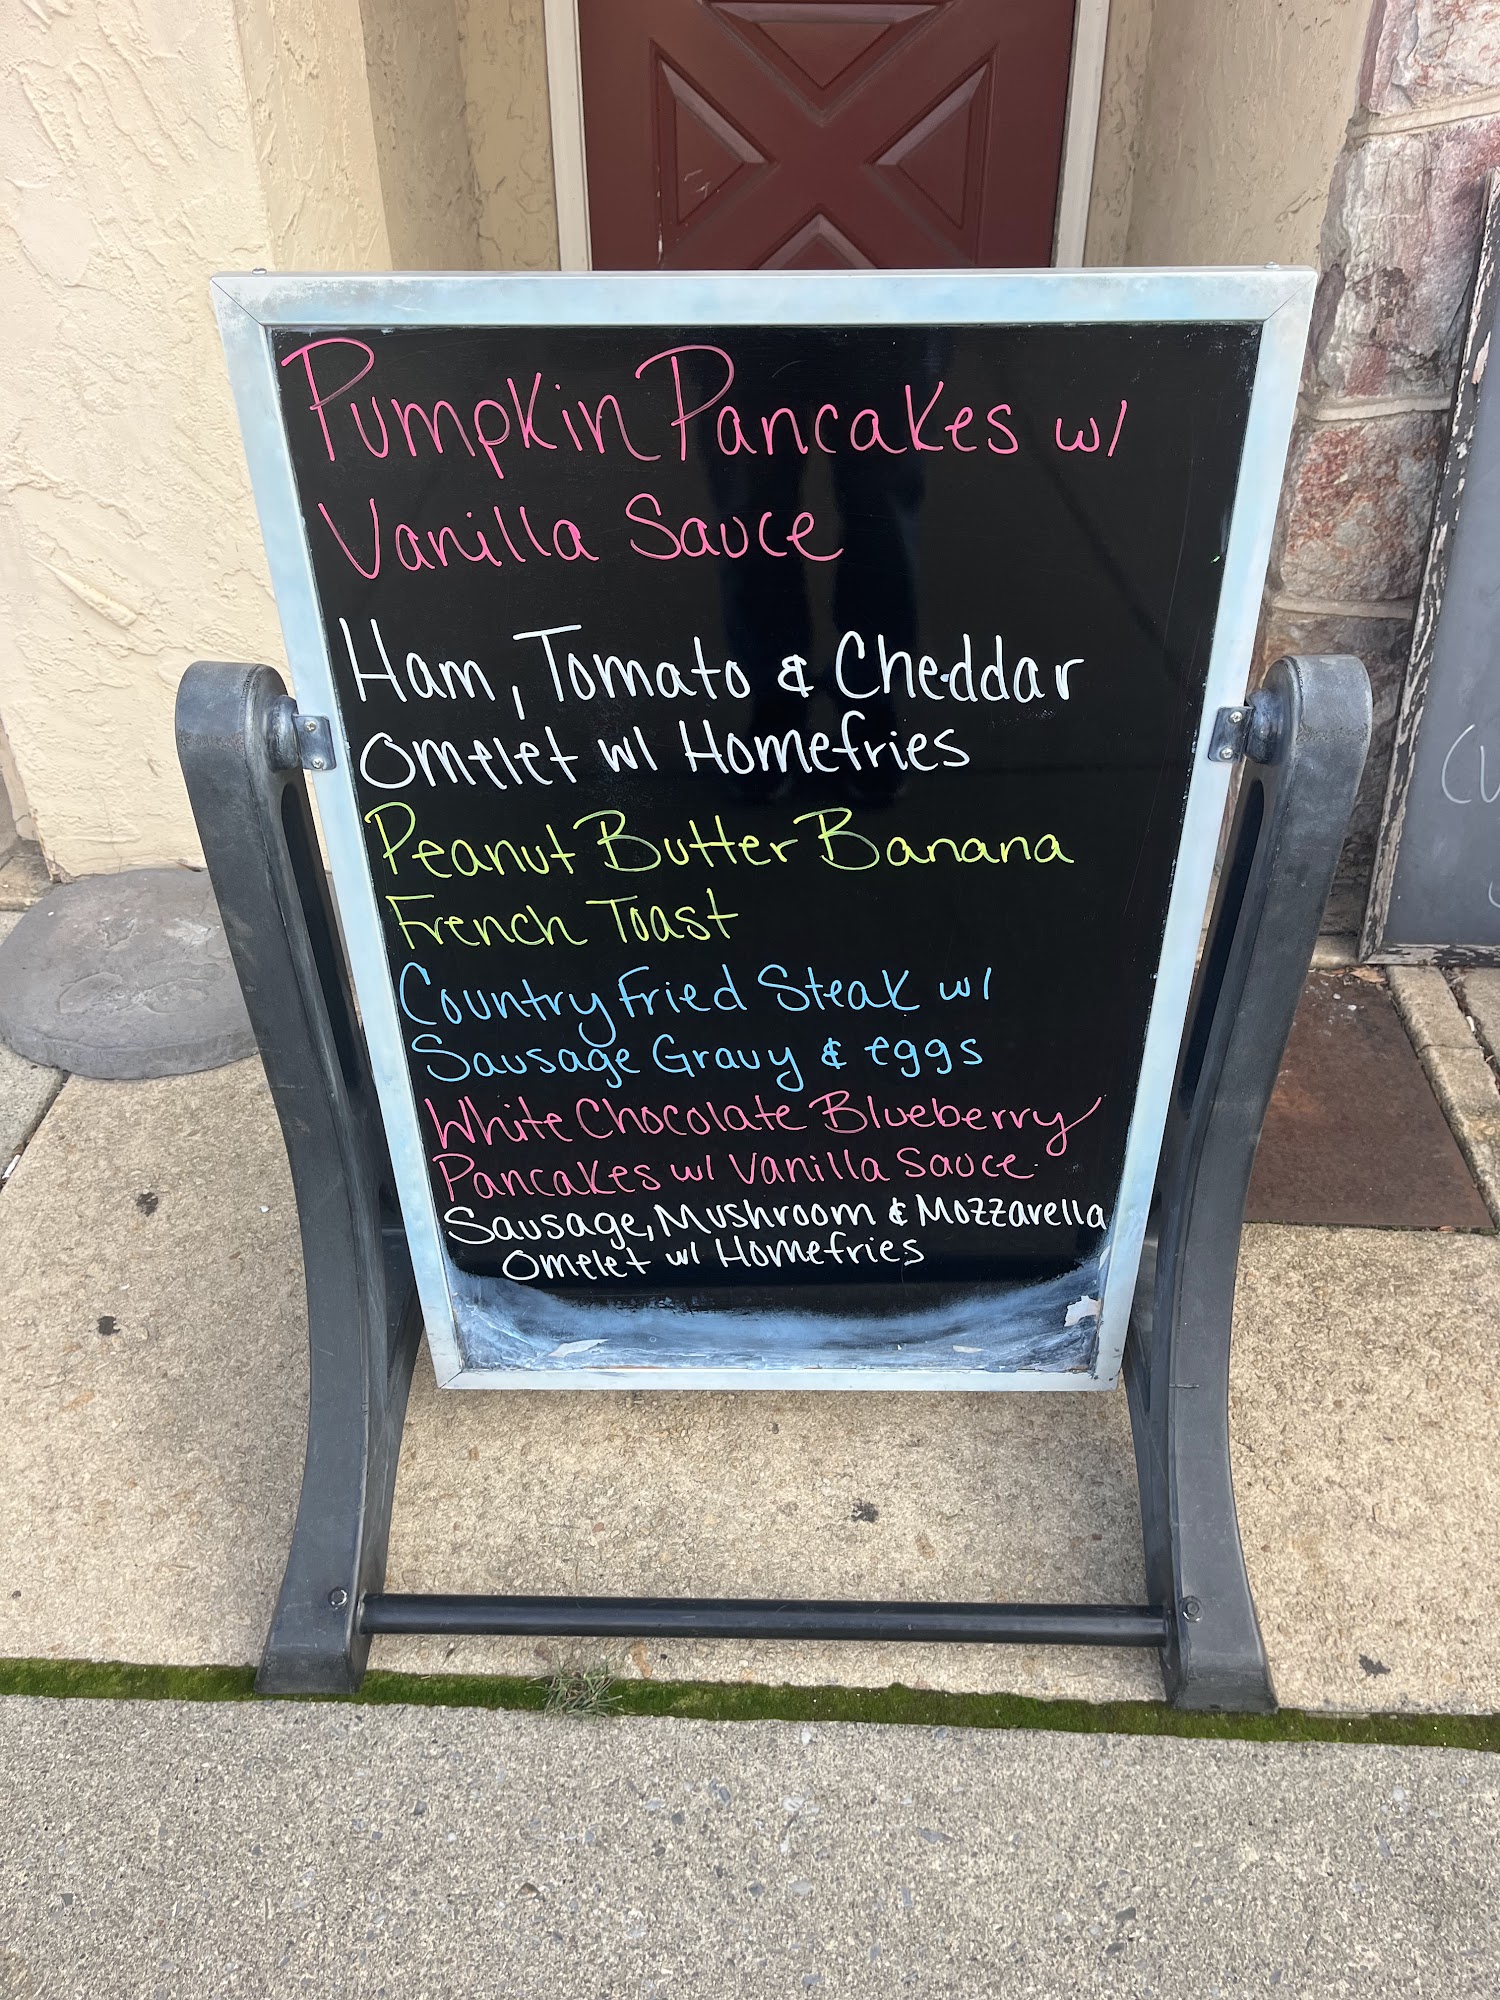 Pumpkin Pancakes w/
Vanilla Sauce
Ham, Tomato & Cheddar
Omelet w/ Homefries
Peanut Butter Banana
French Toast
Country Fried Steak w/
Sausage Gravy & eggs
White Chocolate Blueberry
Pancakes w/ Vanilla Sauce
Sausage, Mushroom & Mozzarella
Omelet w/ Homefries